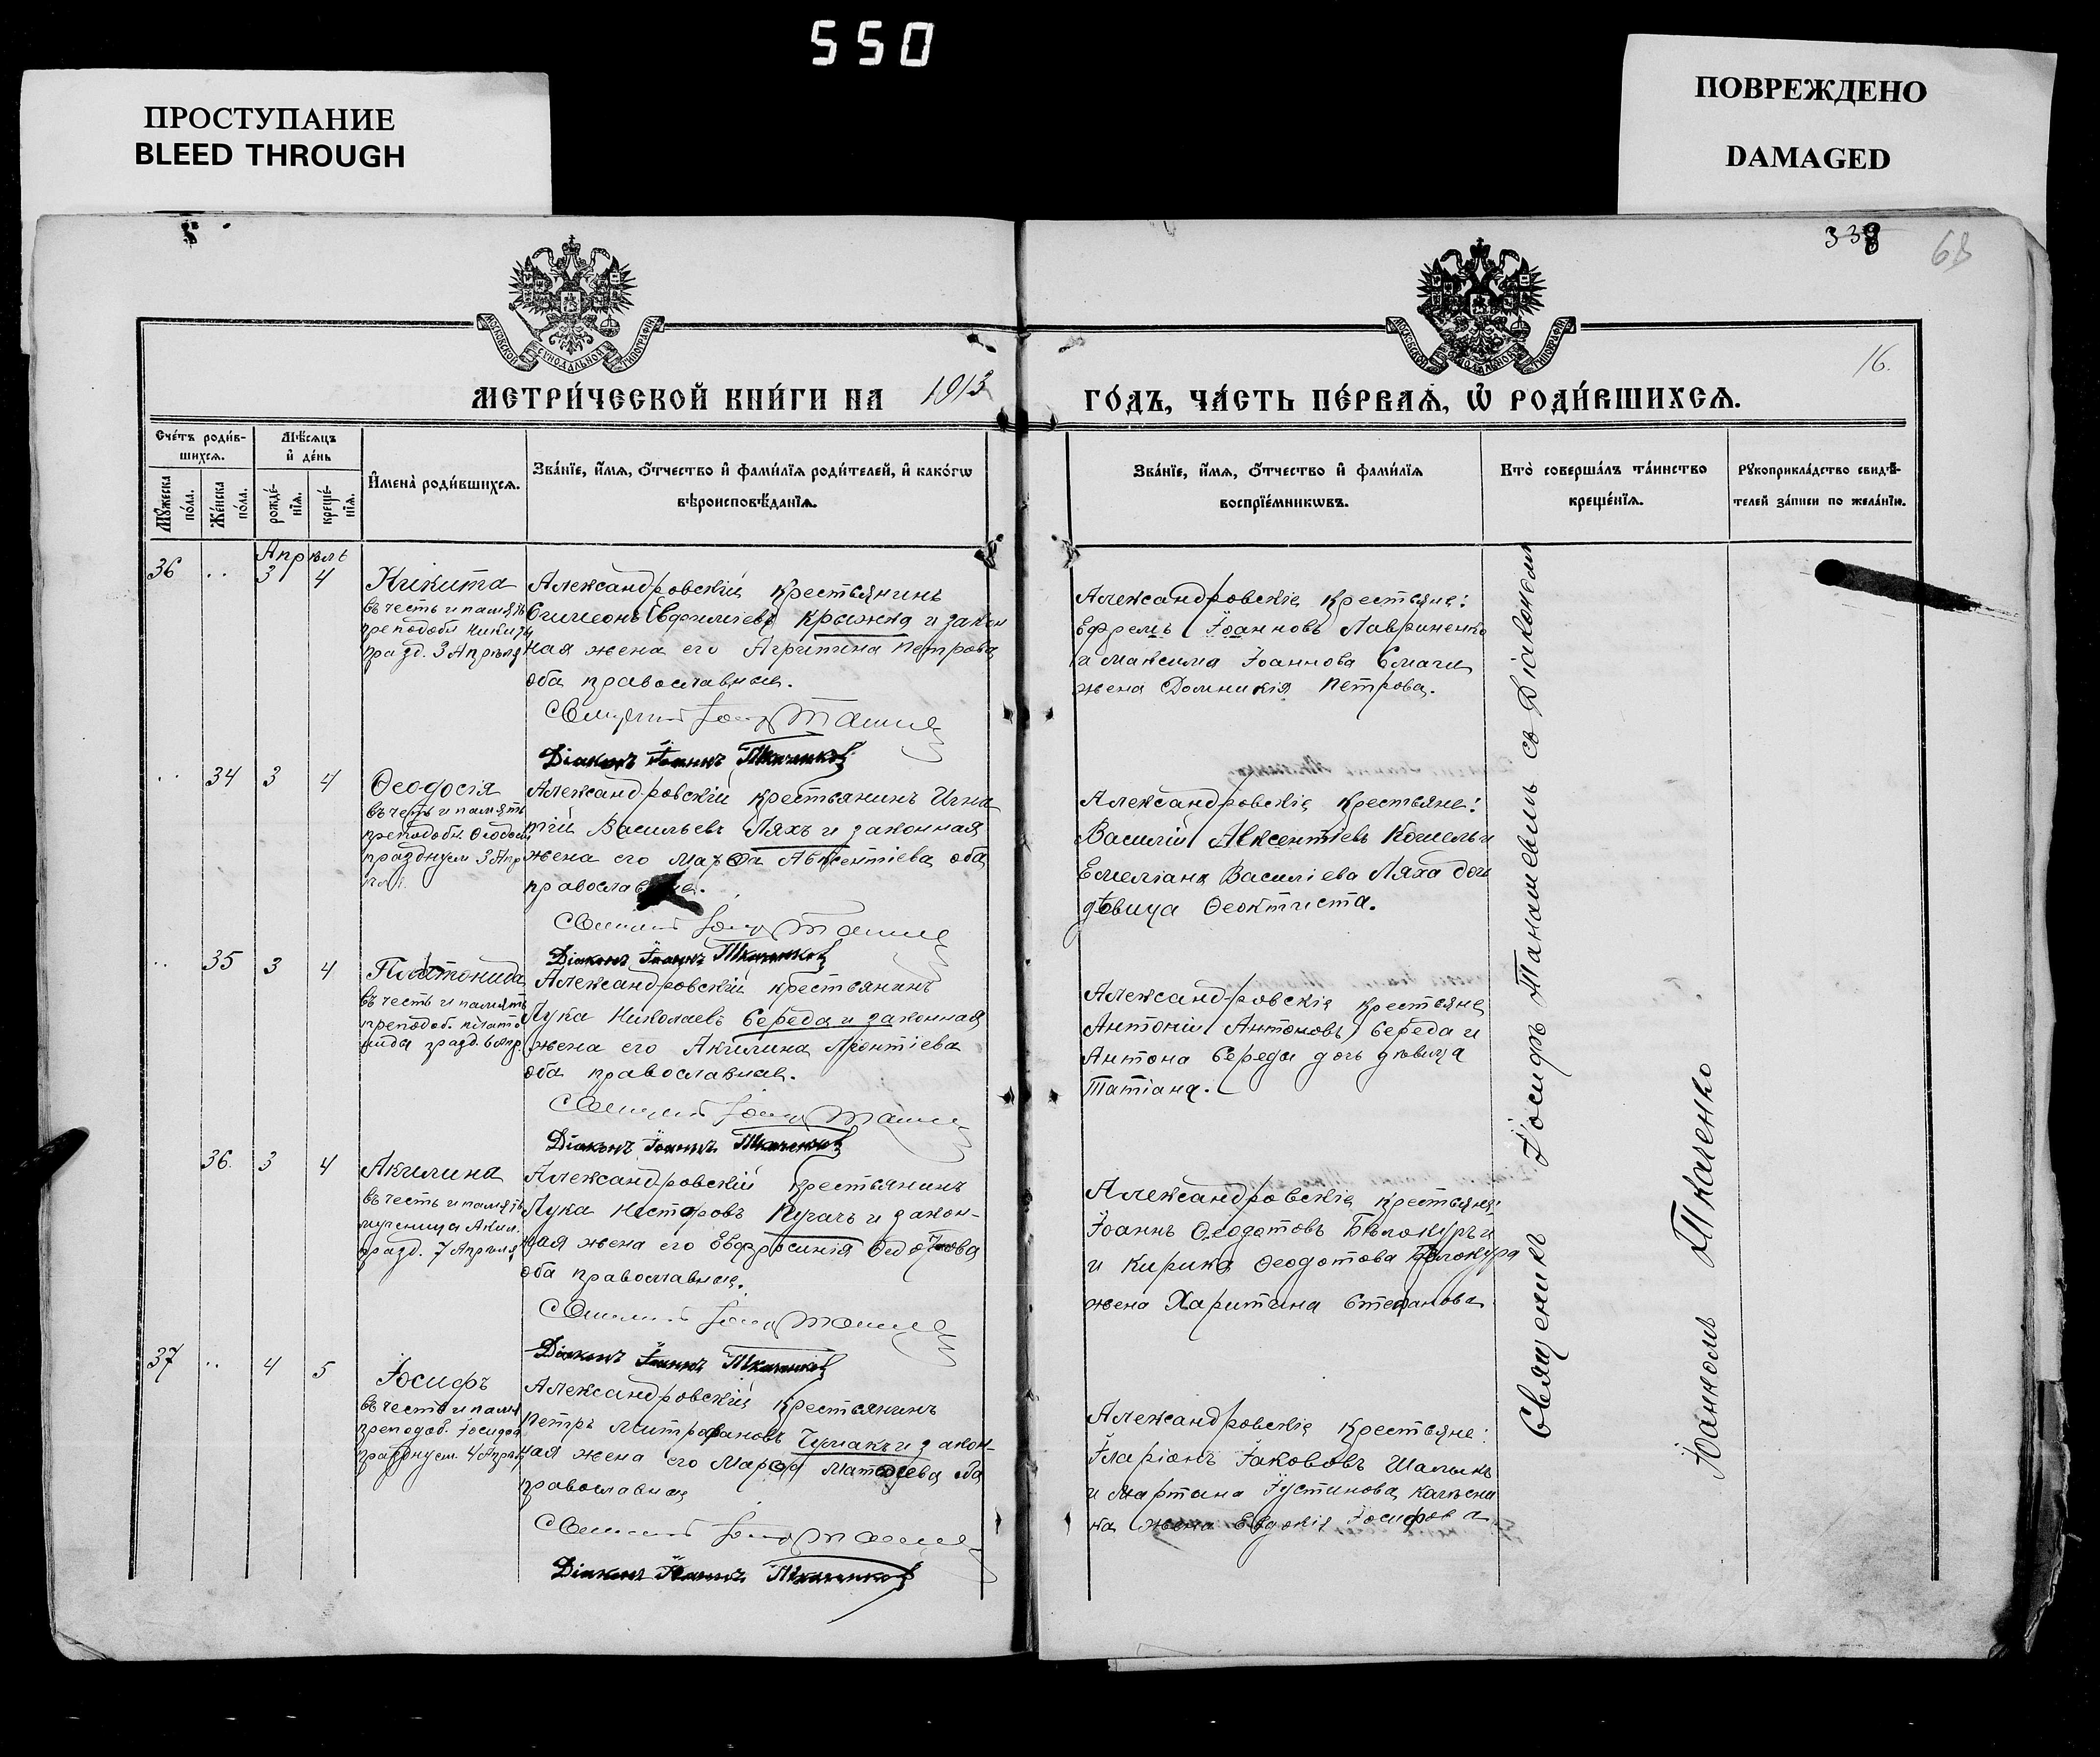 550
ПРОСТУПАНИЕ
BLEED THROUGH
ПОВРЕЖДЕНО
DAMAGED
338
68
16.
МОСКОВСКОЙ СѴНОДАЛЬНОЙ ТИПОГРАФІИ
МОСКОВСКОЙ СѴНОДАЛЬНОЙ ТИПОГРАФІИ
МЕТРИ́ЧЕСКОЙ КНИ́ГИ НА 1913
ГО́ДЪ, ЧА́СТЬ ПЕ́РВАѦ, Ѡ҆ РОДИ́ВШИХСѦ.
Сче́тъ роди́в-
шихсѧ.
Мѣ́сѧцъ
и҆ де́нь
Мꙋ́жеска по́ла.
Же́нска по́ла.
рожде́-нїѧ.
креще́-нїѧ.
И҆мена̀ роди́вшихсѧ.
Зва́нїе, и҆́мѧ, ѻ҆́тчество и҆ фами́лїѧ роди́телей, и҆ како́гѡ
вѣроисповѣ́данїѧ.
Зва́нїе, и҆́мѧ, ѻ҆́тчество и҆ фами́лїѧ
воспрїе́мникѡвъ.
Кто̀ соверша́лъ та́инство
креще́нїѧ.
Рꙋкоприкла́дство свидѣ́-
телей за́писи по жела́нїю.
Апрѣль
36 .. 3 4
Никита
въ честь и память
преподобн Никиты
празд. 3 Апрѣля
Александровскій крестьянинъ
Симеонъ Евфиміевъ Крыжко и закон
ная жена его Агрипина Петрова
оба православные.
Священникъ
Діаконъ Іоаннъ Ткаченко
Александровскіе крестьяне:
Ефремъ Іоанновъ Лавриненко
и Максима Іоаннова
жена Домникія Петрова.
.. 34 3 4
Ѳеодосія
въ честь и память
преподобн. Ѳеодосіи
празднуем 3 Апр
Александровскій крестьянинъ Игна
тій Васильевъ Ляхъ и законная
жена его Марѳа Авксентіева оба
православные.
Священникъ
Діаконъ Іоаннъ Ткаченко
Александровскіе крестьяне:
Василій Авксентіевъ
Емеліана Василіева Ляха дочь
дѣвица Ѳеоктиста.
.. 35 3 4
Платонида
въ честь и память
преподоб. Плато
ниды празд. 6 Апр.
Александровскій крестьянинъ
Лука Николаевъ Середа и законная
жена его Акилина Леонтіева
оба православные.
Священникъ
Діаконъ Іоаннъ Ткаченко
Александровскіе крестьяне
Антоній Антоновъ Середа и
Антона Середы дочь дѣвица
Татіана.
36. 3 4
Акилина
въ честь и память
мученицы Акил.
празд. 7 Апрѣля
Александровскій крестьянинъ
Лука Несторовъ Пугачъ и закон-
ная жена его Евфросинія Ѳедотова
оба православные.
Священникъ
Діаконъ Іоаннъ Ткаченко
Александровскіе крестьяне:
Іоаннъ Ѳеодотовъ Бѣлокуръ и
и Кирика Ѳеодотова Бѣлокура
жена Харитина Стефанова.
37 .. 4 5
Іосифъ
въ честь и память
преподоб. Іосифа
празднуем. 4 Апрѣля
Александровскій крестьянинъ
Петръ Митрофановъ Чумакъ и закон-
ная жена его Марѳа Матѳеева оба
православные
Священникъ
Діаконъ Іоаннъ Ткаченко
Александровскіе крестьяне:
Иларіонъ Іаковов
и Мартина Іустинова
на жена Евдокія Іосифова
Священникъ Іосифъ съ Діакономъ
Іоанномъ Ткаченко